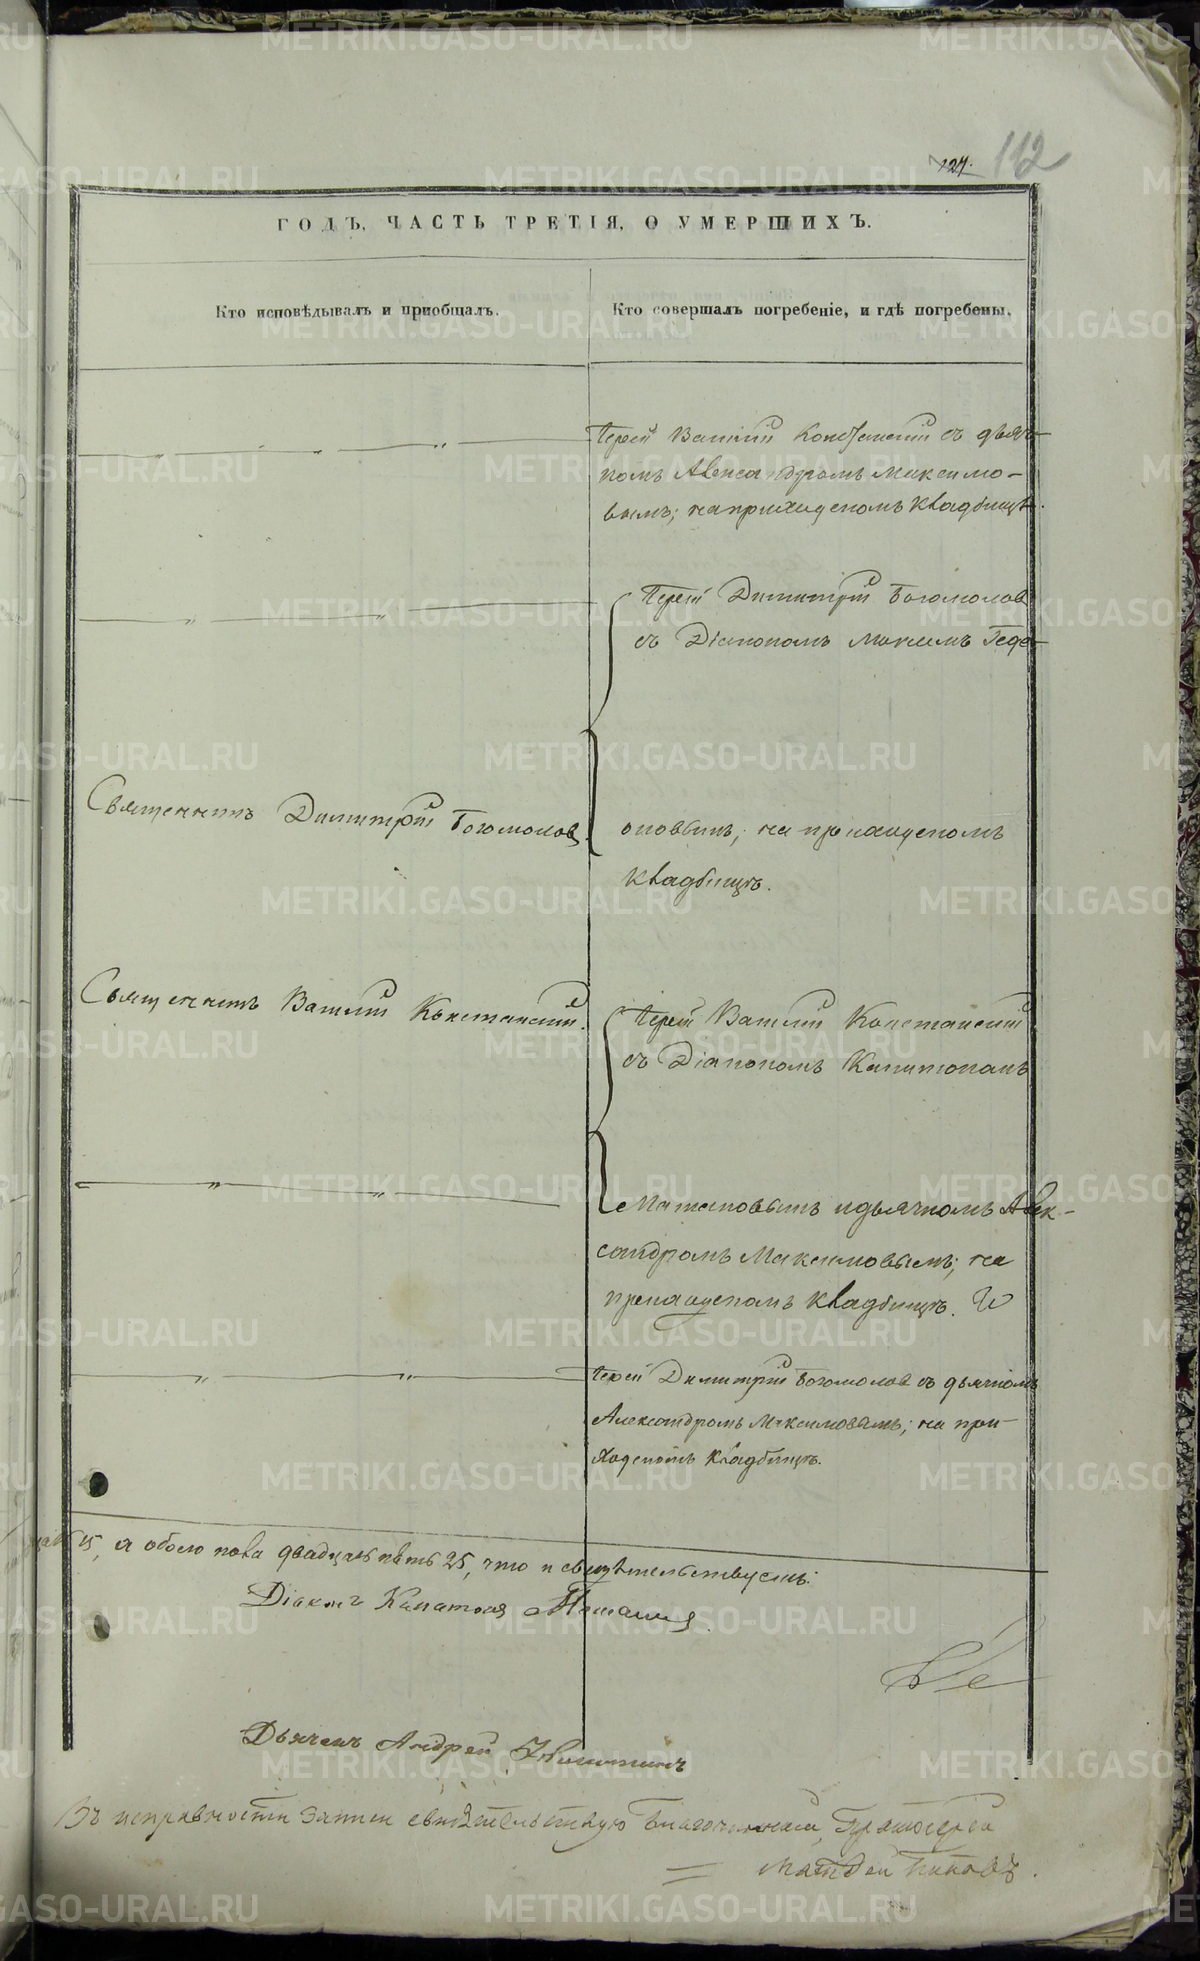 127. 112
ГОДЪ, ЧАСТЬ ТРЕТІЯ, О УМЕРШИХЪ.
Кто исповѣдывалъ и пріобщалъ.
Кто совершалъ погребеніе, и гдѣ погребены.
Іерей Василій Констанскій съ дьяч-
комъ Александромъ Максимо-
вымъ; на приходскомъ кладбищѣ.
Іерей Димитрій Богомоловъ
съ Діакономъ Максимъ Геде-
Священникъ Димитрій Богомоловъ.
оновымъ; на приходскомъ
кладбищѣ.
Священникъ Василій Констанскій.
Іерей Василій Констанскій
съ Діакономъ Капитономъ
и дьячкомъ Алек-
сандромъ Максимовымъ; на
приходскомъ кладбищѣ.
Іерей Димитрій Богомоловъ съ дьячкомъ
Александромъ Максимовымъ; на при-
ходскомъ кладбищѣ.
15, а обоего пола двадцать пять 25, что и свидѣтельствуемъ:
Діаконъ Капитонъ
Дьячекъ Андрей
Въ исправности записи свидѣтельствую Благочинный, Протоіерей
Матѳей Поповъ.
METRIKI.GASO-URAL.RU